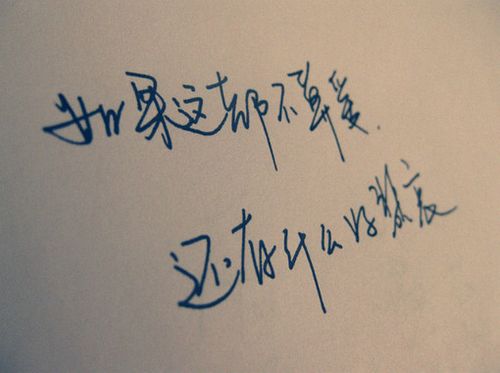 如果这都不算爱.
还有什么好悲哀